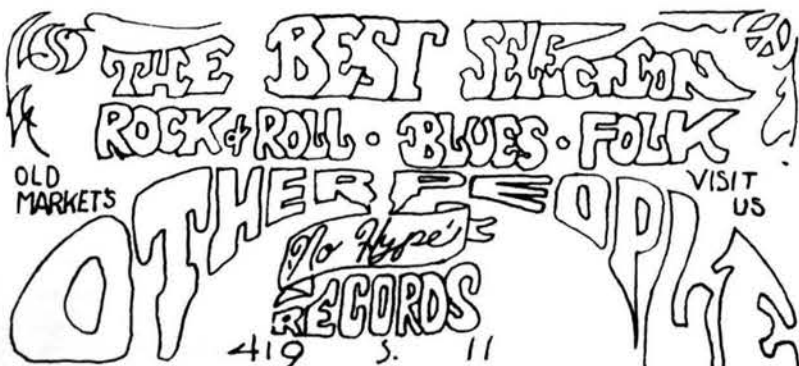 THE BEST SELECTION
ROCK & ROLL · BLUES · FOLK
OLD MARKET'S
VISIT US
OTHER PEOPLE
"No Hype"
RECORDS
419 S. 11